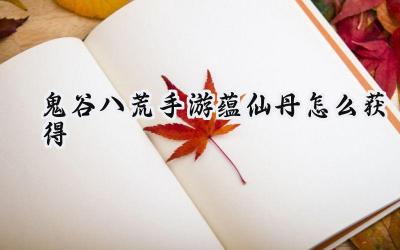 鬼谷八荒手游蕴仙丹怎么获
得